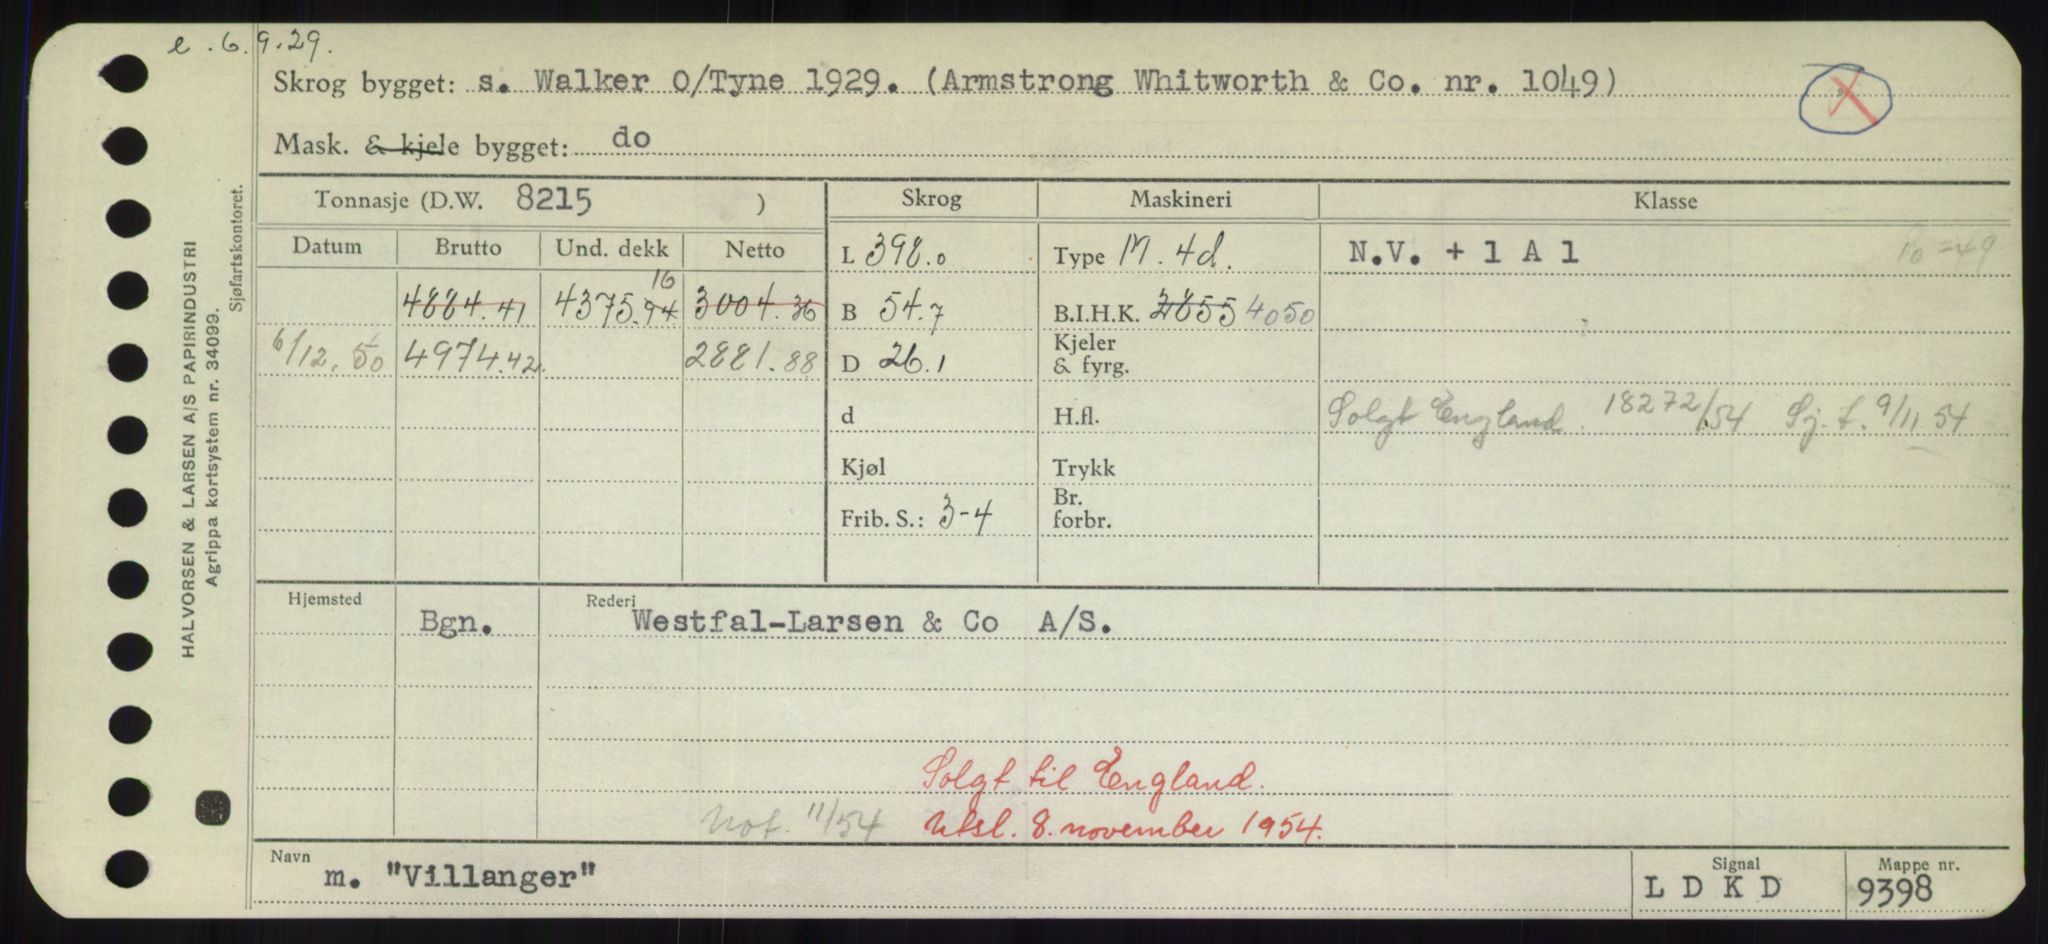 e. 6.9.29.
Skrog bygget: s. Walker O/Tyne 1929. (Armstrong Whitworth & Co. nr. 1049)
X
Mask. & kjele bygget: do
Tonnasje (D.W. 8215 ) Skrog Maskineri Klasse
Datum Brutto Und. dekk Netto L 398.0 Type M. 4d. N.V. + 1 A 1 10-49
16
4884.41 4375.94 3004.36 B 54.7 B.I.H.K. 2855 4050
6/12.50 4974.42 2881.88 D 26.1 Kjeler & fyrg.
d H.fl. Solgt England. 18272/54 Sj. f. 9/11 54
Kjøl Trykk
Frib. S.: 3-4 Br. forbr.
Hjemsted Bgn. Rederi Westfal-Larsen & Co A/S.
Solgt til England.
Not. 11/54 Utsl. 8. november 1954.
Navn m. "Villanger" Signal L D K D Mappe nr. 9398
HALVORSEN & LARSEN A/S PAPIRINDUSTRI
Agrippa kortsystem nr. 34099.
Sjøfartskontoret.